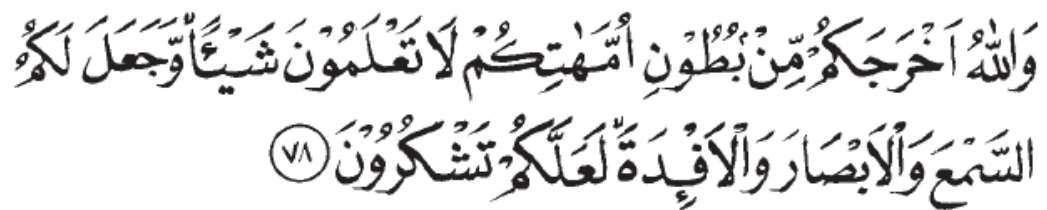 وَاللّٰهُ اَخْرَجَكُمْ مِّنْۢ بُطُوْنِ اُمَّهٰتِكُمْ لَا تَعْلَمُوْنَ شَيْـًٔاۙ وَّجَعَلَ لَكُمُ
السَّمْعَ وَالْاَبْصَارَ وَالْاَفْـِٕدَةَۙ لَعَلَّكُمْ تَشْكُرُوْنَ ٧٨